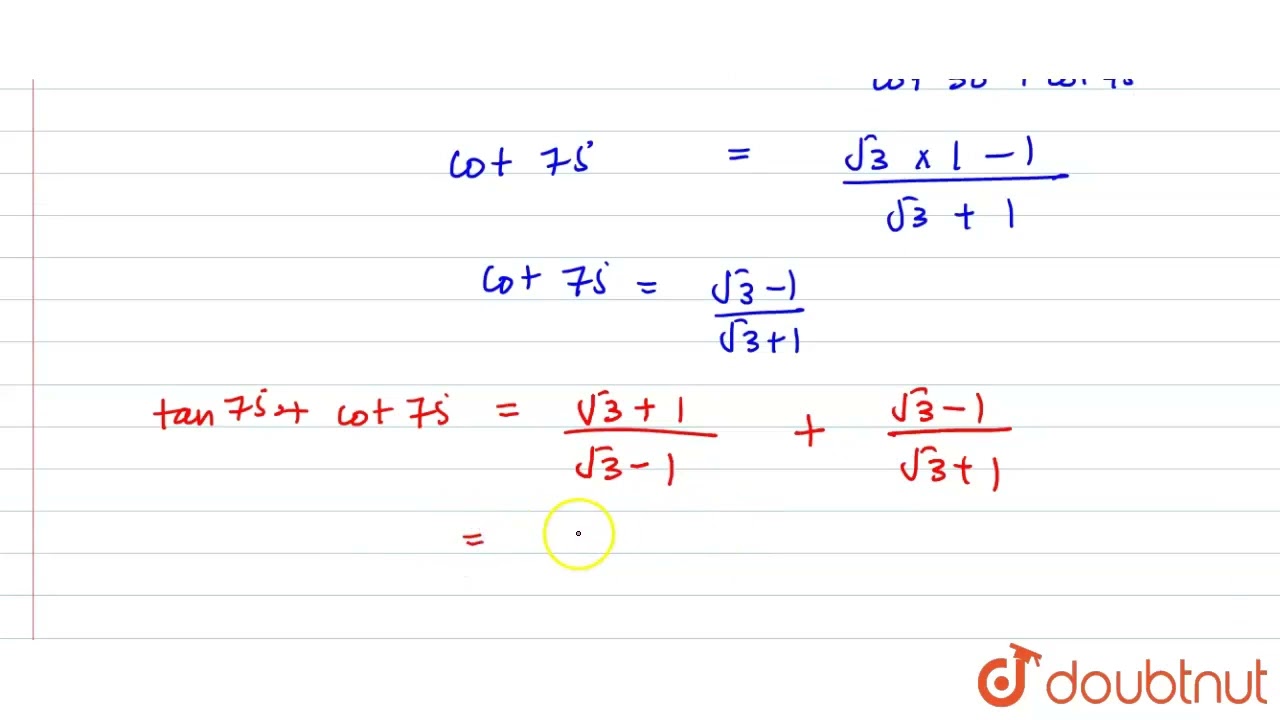 cot 75° = √3 × 1 − 1 / √3 + 1
cot 75° = √3 − 1 / √3 + 1
tan 75° + cot 75° = √3 + 1 / √3 − 1 + √3 − 1 / √3 + 1
=
doubtnut